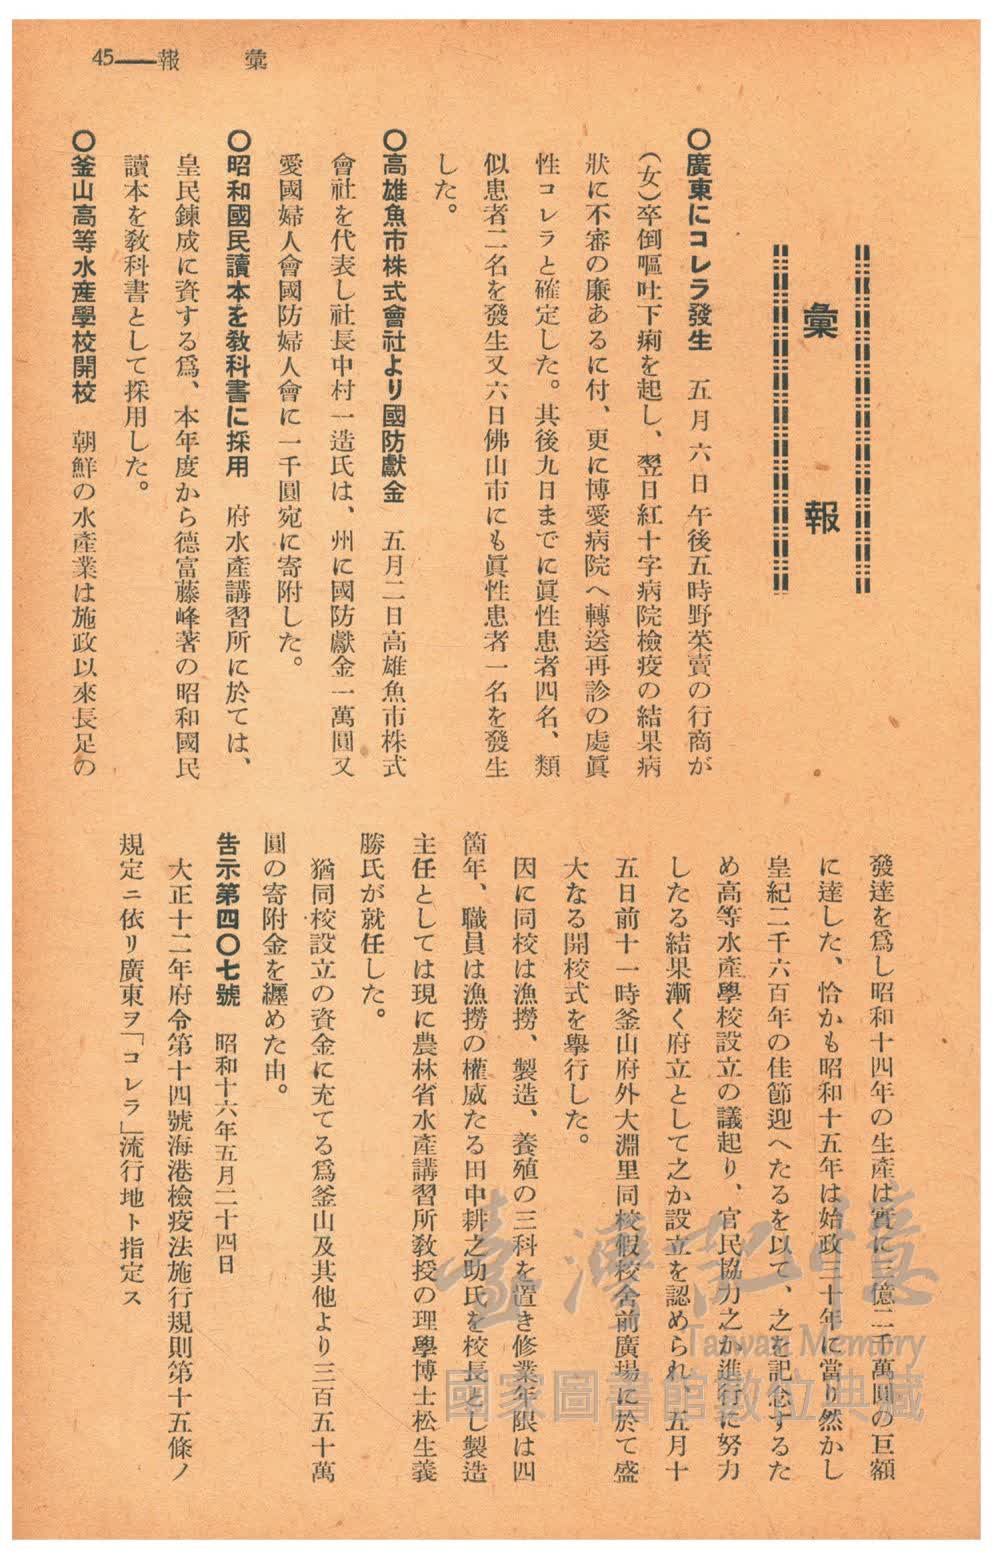 45——報　彙
彙報
〇廣東にコレラ發生　五月六日午後五時野菜賣の行商が
(女)卒倒嘔吐下痢を起し、翌日紅十字病院檢疫の結果病
狀に不審の廉あるに付、更に博愛病院へ轉送再診の處眞
性コレラと確定した。其後九日までに眞性患者四名、類
似患者二名を發生又六日佛山市にも眞性患者一名を發生
した。
〇高雄魚市株式會社より國防獻金　五月二日高雄魚市株式
會社を代表し社長中村一造氏は、州に國防獻金一萬圓又
愛國婦人會國防婦人會に一千圓宛に寄附した。
〇昭和國民讀本を敎科書に採用　府水產講習所に於ては、
皇民鍊成に資する爲、本年度から德富藤峰著の昭和國民
讀本を敎科書として採用した。
〇釜山高等水産學校開校　朝鮮の水產業は施政以來長足の
發達を爲し昭和十四年の生產は實に三億二千萬圓の巨額
に達した、恰かも昭和十五年は始政三十年に當り然かし
皇紀二千六百年の佳節迎へたるを以て、之を記念するた
め高等水產學校設立の議起り、官民協力之か進行に努力
したる結果漸く府立として之か設立を認められ　五月十
五日前十一時釜山府外大淵里同校假校舍前廣場に於て盛
大なる開校式を擧行した。
因に同校は漁撈、製造、養殖の三科を置き修業年限は四
箇年、職員は漁撈の權威たる田中耕之助氏を校長とし製造
主任としては現に農林省水產講習所敎授の理學博士松生義
勝氏が就任した。
猶同校設立の資金に充てる爲釜山及其他より三百五十萬
圓の寄附金を纒めた由。
吿示第四〇七號　昭和十六年五月二十四日
大正十二年府令第十四號海港檢疫法施行規則第十五條ノ
規定ニ依リ廣東ヲ「コレラ」流行地ト指定ス
臺灣記憶
Taiwan Memory
國家圖書館數位典藏